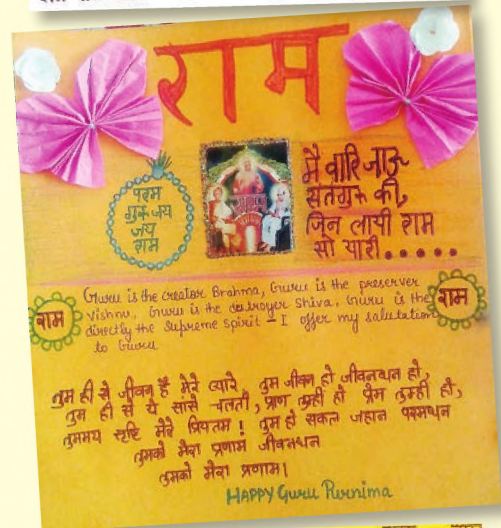 राम
परम
गुरु जय
जय
राम
मै वारि जाऊ
सतगुरु की,
जिन लायी राम
सो यारी.....
राम
Guru is the creator Brahma, Guru is the preserver
Vishnu, Guru is the destroyer Shiva, Guru is the
directly the Supreme Spirit – I offer my salutation
to Guru
राम
तुम ही से जीवन है मेरे प्यारे, तुम जीवन हो जीवनधन हो,
तुम ही से ये सांसे चलती, प्राण तुम्ही हो प्रेम तुम्हीं हो,
तुममय सृष्टि मेरे प्रियतम! तुम हो सकल जहान परमाधन
तुमको मेरा प्रणाम जीवनधन
तुमको मेरा प्रणाम।
HAPPY Guru Purnima